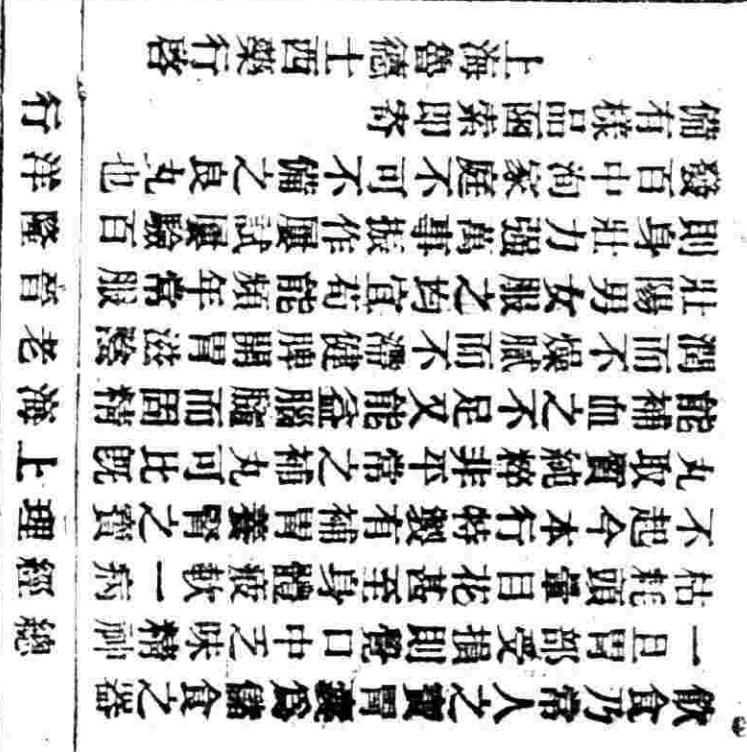 飲食乃常人之寶胃囊爲儲食之器
一旦胃部受損則覺口中乏味精神
枯耗頭暈目花甚至身體疲軟一病
不起今本行特製有補胃養腎之寶
丸取質純粹非平常之補丸可比既
能補血之不足又能益腦髓而固精
潤而不燥膩而不滯健脾開胃滋陰
壯陽男女服之均宜若能頻年常服
則身壯力强萬事振作屢試屢驗百
發百中洵家庭不可不備之良丸也
備有樣品函索即寄
上海魯德士西藥行啓
總經理上海老晉隆洋行